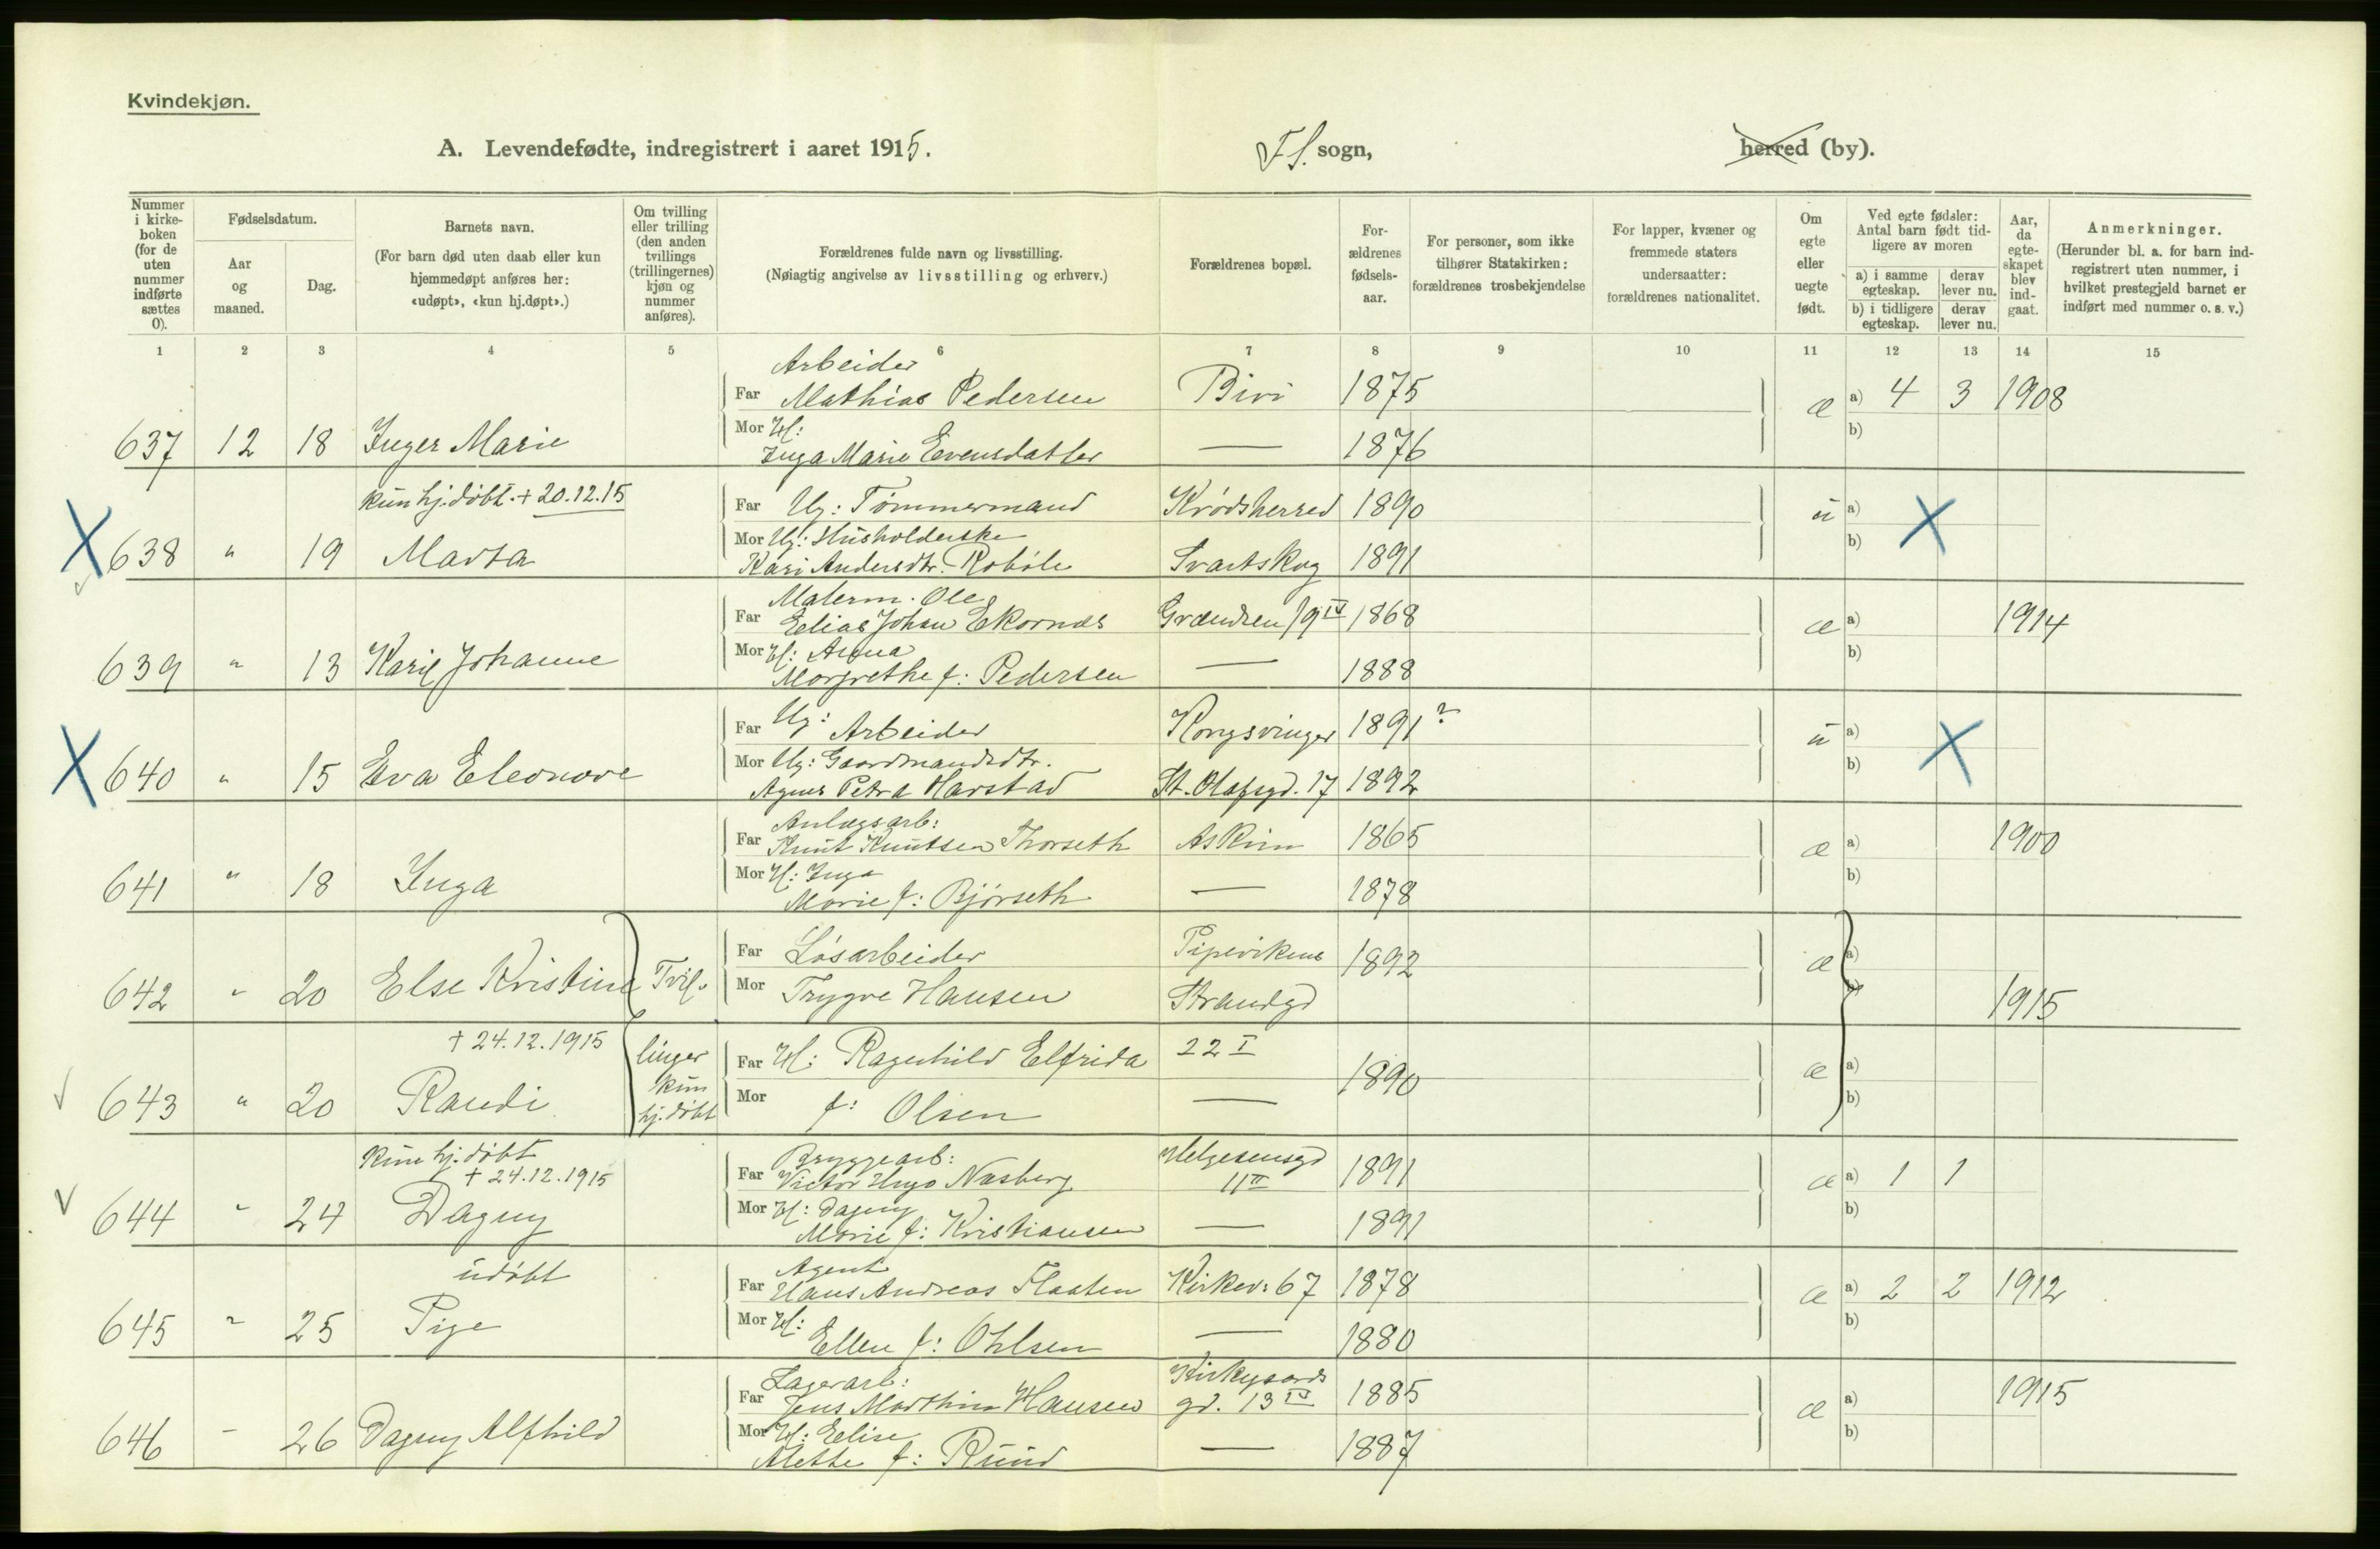 Kvindekjøn.
A. Levendefødte, indregistrert i aaret 1915. F.S. sogn, herred (by).
Nummer i kirkeboken (for de uten nummer indførte sættes 0).
Fødselsdatum.
Aar og maaned.
Dag.
Barnets navn.
(For barn død uten daab eller kun hjemmedøpt anføres her: «udøpt», «kun hj.døpt».)
Om tvilling eller trilling (den anden tvillings (trillingernes) kjøn og nummer anføres).
Forældrenes fulde navn og livsstilling.
(Nøiagtig angivelse av livsstilling og erhverv.)
Forældrenes bopæl.
Forældrenes fødselsaar.
For personer, som ikke tilhører Statskirken: forældrenes trosbekjendelse
For lapper, kvæner og fremmede staters undersaatter: forældrenes nationalitet.
Om egte eller uegte født.
Ved egte fødsler: Antal barn født tidligere av moren
a) i samme egteskap. derav lever nu.
b) i tidligere egteskap. derav lever nu.
Aar, da egteskapet blev indgaat.
Anmerkninger.
(Herunder bl. a. for barn indregistrert uten nummer, i hvilket prestegjeld barnet er indført med nummer o. s. v.)
1 2 3 4 5 6 7 8 9 10 11 12 13 14 15
Arbeider
Far Mathias Pedersen Biri 1875 æ a) 4 3 1908
Mor H: b)
637 12 18 Inger Marie Inga Marie Evensdatter — 1876
kun hj.døbt. + 20.12.15 Far Ug: Tømmermand Krødsherred 1890 u a)
Mor Ug: Husholderske b)
X 638 " 19 Marta Kari Andersdtr. Robøle Svartskog 1891 X
Malerm. Ole
Far Elias Johan Ekornæs Grændsen 19 IV 1868 æ a) 1914
Mor H: Anna b)
639 " 13 Karil Johanne Margrethe f: Pedersen — 1888
Far Ug: Arbeider Kongsvinger 1891 ? u a)
Mor Ug: Gaardmandsdtr. b)
X 640 " 15 Eva Eleonore Agnes Petra Harstad St. Olafsgd. 17 1892 X
Anlægsarb:
Far Knut Knutsen Thorseth Askim 1865 æ a) 1900
Mor H: Inga b)
641 " 18 Inga Marie f: Bjørseth — 1878
Far Løsarbeider Pipervikens 1892 æ a)
642 " 20 Else Kristine Tvil- Mor Trygve Hansen Strandgd b) 1915
+ 24.12.1915 linger Far H: Ragnhild Elfrida 22 I 1890 æ a)
643 " 20 Randi kun hj.døbt Mor f: Olsen — b)
kun hj.døbt Bryggearb: Helgesensgd
+ 24.12.1915 Far Victor Hugo Næsberg 11 II 1891 æ a) 1 1
Mor H: Dagny b)
644 " 24 Dagny Marie f: Kristiansen — 1891
udøbt Agent
Far Hans Andreas Flaaten Kirkev: 67 1878 æ a) 2 2 1912
Mor H: b)
645 " 25 Pige Ellen f: Ohlsen — 1880
Lagerarb: Kirkegaards
Far Jens Marthin Hansen gd. 13 IV 1885 æ a) 1915
Mor H: Elise b)
646 " 26 Dagny Alfhild Alette f: Ruud — 1887